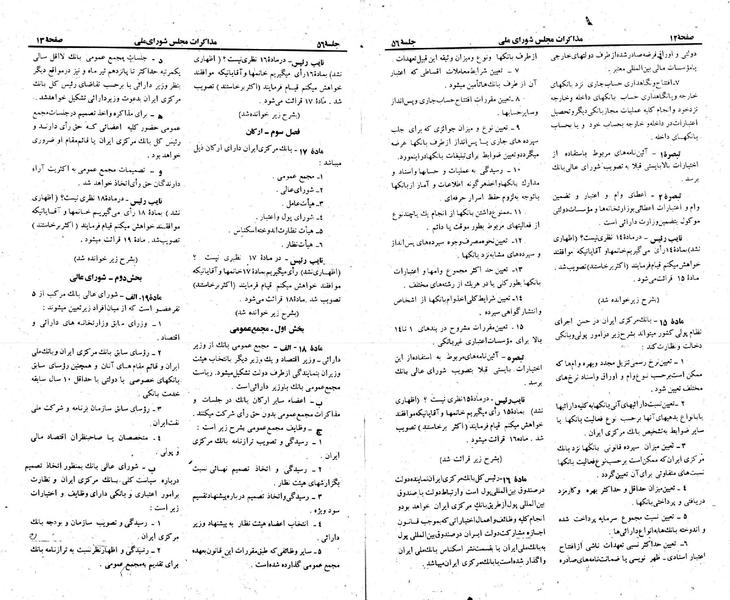 صفحه ۱۲
مذاکرات مجلس شورای ملی
جلسه ۵۶
دولتی و اوراق قرضه صادر شده از طرف دولتهای خارجی
یا مؤسسات مالی بین‌المللی معتبر.
۷ـ افتتاح و نگاهداری حساب جاری نزد بانکهای
خارجه و یا نگاهداری حساب بانکهای داخله و خارجه
نزد خود و انجام کلیه عملیات مجاز بانکی دیگر و تحصیل
اعتبارات در داخله و خارجه بحساب خود و یا بحساب
بانکهای داخله.
تبصره ۱ـ آئین‌نامه‌های مربوط باستفاده از
اختیارات بالا بایستی قبلا به تصویب شورای عالی بانک
برسد.
تبصره ۲ـ اعطای وام و اعتبار و تضمین
وام و اعتبارات اعطائی بوزارتخانه‌ها و مؤسسات دولتی
موکول بتضمین وزارت دارائی است.
نایب رئیس- در ماده ۱۴ نظری نیست؟ (اظهاری
نشد) بماده ۱۴ رأی میگیریم خانمها و آقایانیکه موافقند
خواهش میکنم قیام فرمایند (اکثر برخاستند) تصویب شد.
ماده ۱۵ قرائت میشود.
(بشرح زیر خوانده شد)
ماده ۱۵ ـ بانک مرکزی ایران در حسن اجرای
نظام پولی کشور میتواند بشرح زیر در امور پولی و بانکی
دخالت و نظارت کند:
۱ـ تعیین نرخ رسمی تنزیل مجدد و بهره وامها که
ممکن است برحسب نوع وام و اوراق و اسناد نرخ‌های
مختلف تعیین شود.
۲ـ تعیین نسبت دارائیهای آنی بانکها به کلیه دارائیها
یا با انواع بدهیهای آنها برحسب نوع فعالیت بانکها یا
سایر ضوابط به تشخیص بانک مرکزی ایران.
۳ـ تعیین میزان سپرده قانونی بانکها نزد بانک
مرکزی ایران که ممکن است برحسب نوع فعالیت بانکها
نسبت‌های متفاوتی برای آن تعیین گردد.
۴ـ تعیین میزان حداقل و حداکثر بهره و کارمزد
دریافتی و پرداختی بانکها.
۵ ـ تعیین نسبت مجموع سرمایه پرداخت شده
و اندوخته بانک‌ها به انواع دارائی‌ها.
۶ـ تعیین حداکثر نسبی تعهدات ناشی از افتتاح
اعتبار اسنادی - ظهر نویسی یا ضمانت‌نامه‌های صادره
از طرف بانکها و نوع و میزان وثیقه این قبیل تعهدات
۷ - تعیین شرایط معاملات اقساطی که اعتبار
آن از طرف بانکها تأمین میشود.
۸ـ تعیین مقررات افتتاح حساب جاری و پس‌انداز
و سایر حسابها.
۹ـ تعیین نوع و میزان جوائزی که برای جلب
سپرده های جاری یا پس‌انداز از طرف بانکها عرضه
میگردد و تعیین ضوابط برای تبلیغات بانکها در این مورد.
۱۰ ـ رسیدگی به عملیات و حسابها و اسناد و
مدارک بانکها و اخذ هرگونه اطلاعات و آمار از بانکها
با توجه به لزوم حفظ اسرار حرفه‌ای.
۱۱ـ ممنوع داشتن بانکها از انجام یک یا چند نوع
از فعالیتهای مربوط بطور موقت یا دائم.
۱۲ـ تعیین نحوه مصرف وجوه سپرده‌های پس‌انداز
و سپرده‌های مشابه نزد بانکها.
۱۳ـ تعیین حد اکثر مجموع وامها و اعتبارات
بانکها بطور کلی یا در هر یک از رشته‌های مختلف.
۱۴ـ تعیین شرایط کلی اخذ وام بانکها از اشخاص
و انتشار گواهی سپرده.
۱۵ ـ تعیین مقررات مشروح در بندهای ۱ تا ۱۴
بالا برای مؤسسات اعتباری غیربانکی.
تبصره - آئین‌نامه‌های مربوط به استفاده از این
اختیارات بایستی قبلا بتصویب شورای عالی بانک
برسد.
نایب رئیس - در ماده ۱۵ نظری نیست؟ (اظهاری
نشد) بماده ۱۵ رأی میگیریم خانمها و آقایانیکه موافقند
خواهش میکنم قیام فرمایند (اکثر برخاستند) تصویب
شد. ماده ۱۶ قرائت میشود.
(بشرح زیر قرائت شد)
ماده ۱۶ ـ رئیس کل بانک مرکزی ایران نماینده دولت
در صندوق بین‌المللی پول است و ارتباط دولت با صندوق
بین‌المللی پول از طریق بانک مرکزی ایران خواهد بود
انجام کلیه وظائف و اعمال اختیاراتی که بموجب قانون
اجازه مشارکت دولت ایران در صندوق بین‌المللی پول
به بانک ملی ایران یا قسمت نشر اسکناس بانک ملی ایران
واگذار شده است با بانک مرکزی ایران میباشد.
جلسه ۵۶
مذاکرات مجلس شورای ملی
صفحه ۱۳
نایب رئیس- در ماده ۱۶ نظری نیست؟ (اظهاری
نشد) بماده ۱۶ رأی میگیریم خانمها و آقایانیکه موافقند
خواهش میکنم قیام فرمایند (اکثر برخاستند) تصویب
شد. ماده ۱۷ قرائت می شود.
(بشرح زیر خوانده شد)
فصل سوم - ارکان
ماده ۱۷ ـ بانک مرکزی ایران دارای ارکان ذیل
میباشد:
۱ـ مجمع عمومی.
۲ـ شورای عالی.
۳ـ هیأت عامل.
۴ـ شورای پول و اعتبار.
۵ـ هیأت نظارت اندوخته اسکناس.
۶ـ هیأت نظار.
نایب رئیس- در ماده ۱۷ نظری نیست ؟
(اظهاری نشد) بماده ۱۷ رأی میگیریم خانمها و آقایانیکه
موافقند خواهش میکنم قیام فرمایند (اکثر برخاستند)
تصویب شد. ماده ۱۸ قرائت می‌شود.
(بشرح زیر خوانده شد)
بخش اول - مجمع عمومی
ماده ۱۸ - الف - مجمع عمومی بانک از وزیر
دارائی- وزیر اقتصاد و یک وزیر دیگر بانتخاب هیئت
وزیران بنمایندگی از طرف دولت تشکیل میشود. ریاست
مجمع عمومی بانک با وزیر دارائی است.
ب ـ اعضاء سایر ارکان بانک در جلسات و
مذاکرات مجمع عمومی بدون حق رأی شرکت میکنند.
ج ـ وظایف مجمع عمومی بشرح زیر است:
۱ ـ رسیدگی و تصویب ترازنامه بانک مرکزی
ایران.
۲ ـ رسیدگی و اتخاذ تصمیم نهائی نسبت
بگزارشهای هیئت نظار.
۳ـ رسیدگی و اتخاذ تصمیم درباره پیشنهاد تقسیم
سود ویژه.
۴ـ انتخاب اعضاء هیئت نظار به پیشنهاد وزیر
دارائی.
۵ـ سایر وظائفی که طبق مقررات این قانون بعهده
مجمع عمومی گذارده شده است.
د ـ جلسات مجمع عمومی بانک لااقل سالی
یکمرتبه حداکثر تا پانزدهم تیر ماه و نیز در مواقع دیگر
بنظر وزیر دارائی یا برحسب تقاضای رئیس کل بانک
مرکزی ایران بدعوت وزیر دارائی تشکیل خواهد شد.
ه ـ برای مذاکره و اخذ تصمیم در جلسات مجمع
عمومی حضور کلیه اعضائی که حق رأی دارند و
رئیس کل بانک مرکزی ایران یا قائم مقام او ضروری
خواهد بود.
و ـ تصمیمات مجمع عمومی به اکثریت آراء
دارندگان حق رأی اتخاذ خواهد شد.
نایب رئیس- در ماده ۱۸ نظری نیست؟ (اظهاری
نشد) بماده ۱۸ رأی میگیریم خانمها و آقایانیکه
موافقند خواهش میکنم قیام فرمایند (اکثر برخاستند)
تصویب شد. ماده ۱۹ قرائت میشود.
(بشرح زیر خوانده شد)
بخش دوم - شورای عالی
ماده ۱۹- الف- شورای عالی بانک مرکب از ۵
نفر عضو است که از میان افراد زیر تعیین میشوند:
۱- وزرای سابق وزارتخانه های دارائی و
اقتصاد.
۲- رؤسای سابق بانک مرکزی ایران و بانک ملی
ایران و قائم مقام های آنان و همچنین رؤسای سابق
بانکهای خصوصی یا دولتی با حداقل ۱۰ سال سابقه
خدمت بانکی.
۳- رؤسای سابق سازمان برنامه و شرکت ملی
نفت ایران.
۴- متخصصان یا صاحبنظران اقتصاد مالی
و پولی.
ب - شورای عالی بانک بمنظور اتخاذ تصمیم
درباره سیاست کلی بانک مرکزی ایران و نظارت
بر امور اعتباری و بانکی دارای وظایف و اختیارات
زیر است:
۱- رسیدگی و تصویب سازمان و بودجه بانک
مرکزی ایران.
۲- رسیدگی و اظهارنظر نسبت به ترازنامه بانک
برای تقدیم به مجمع عمومی.